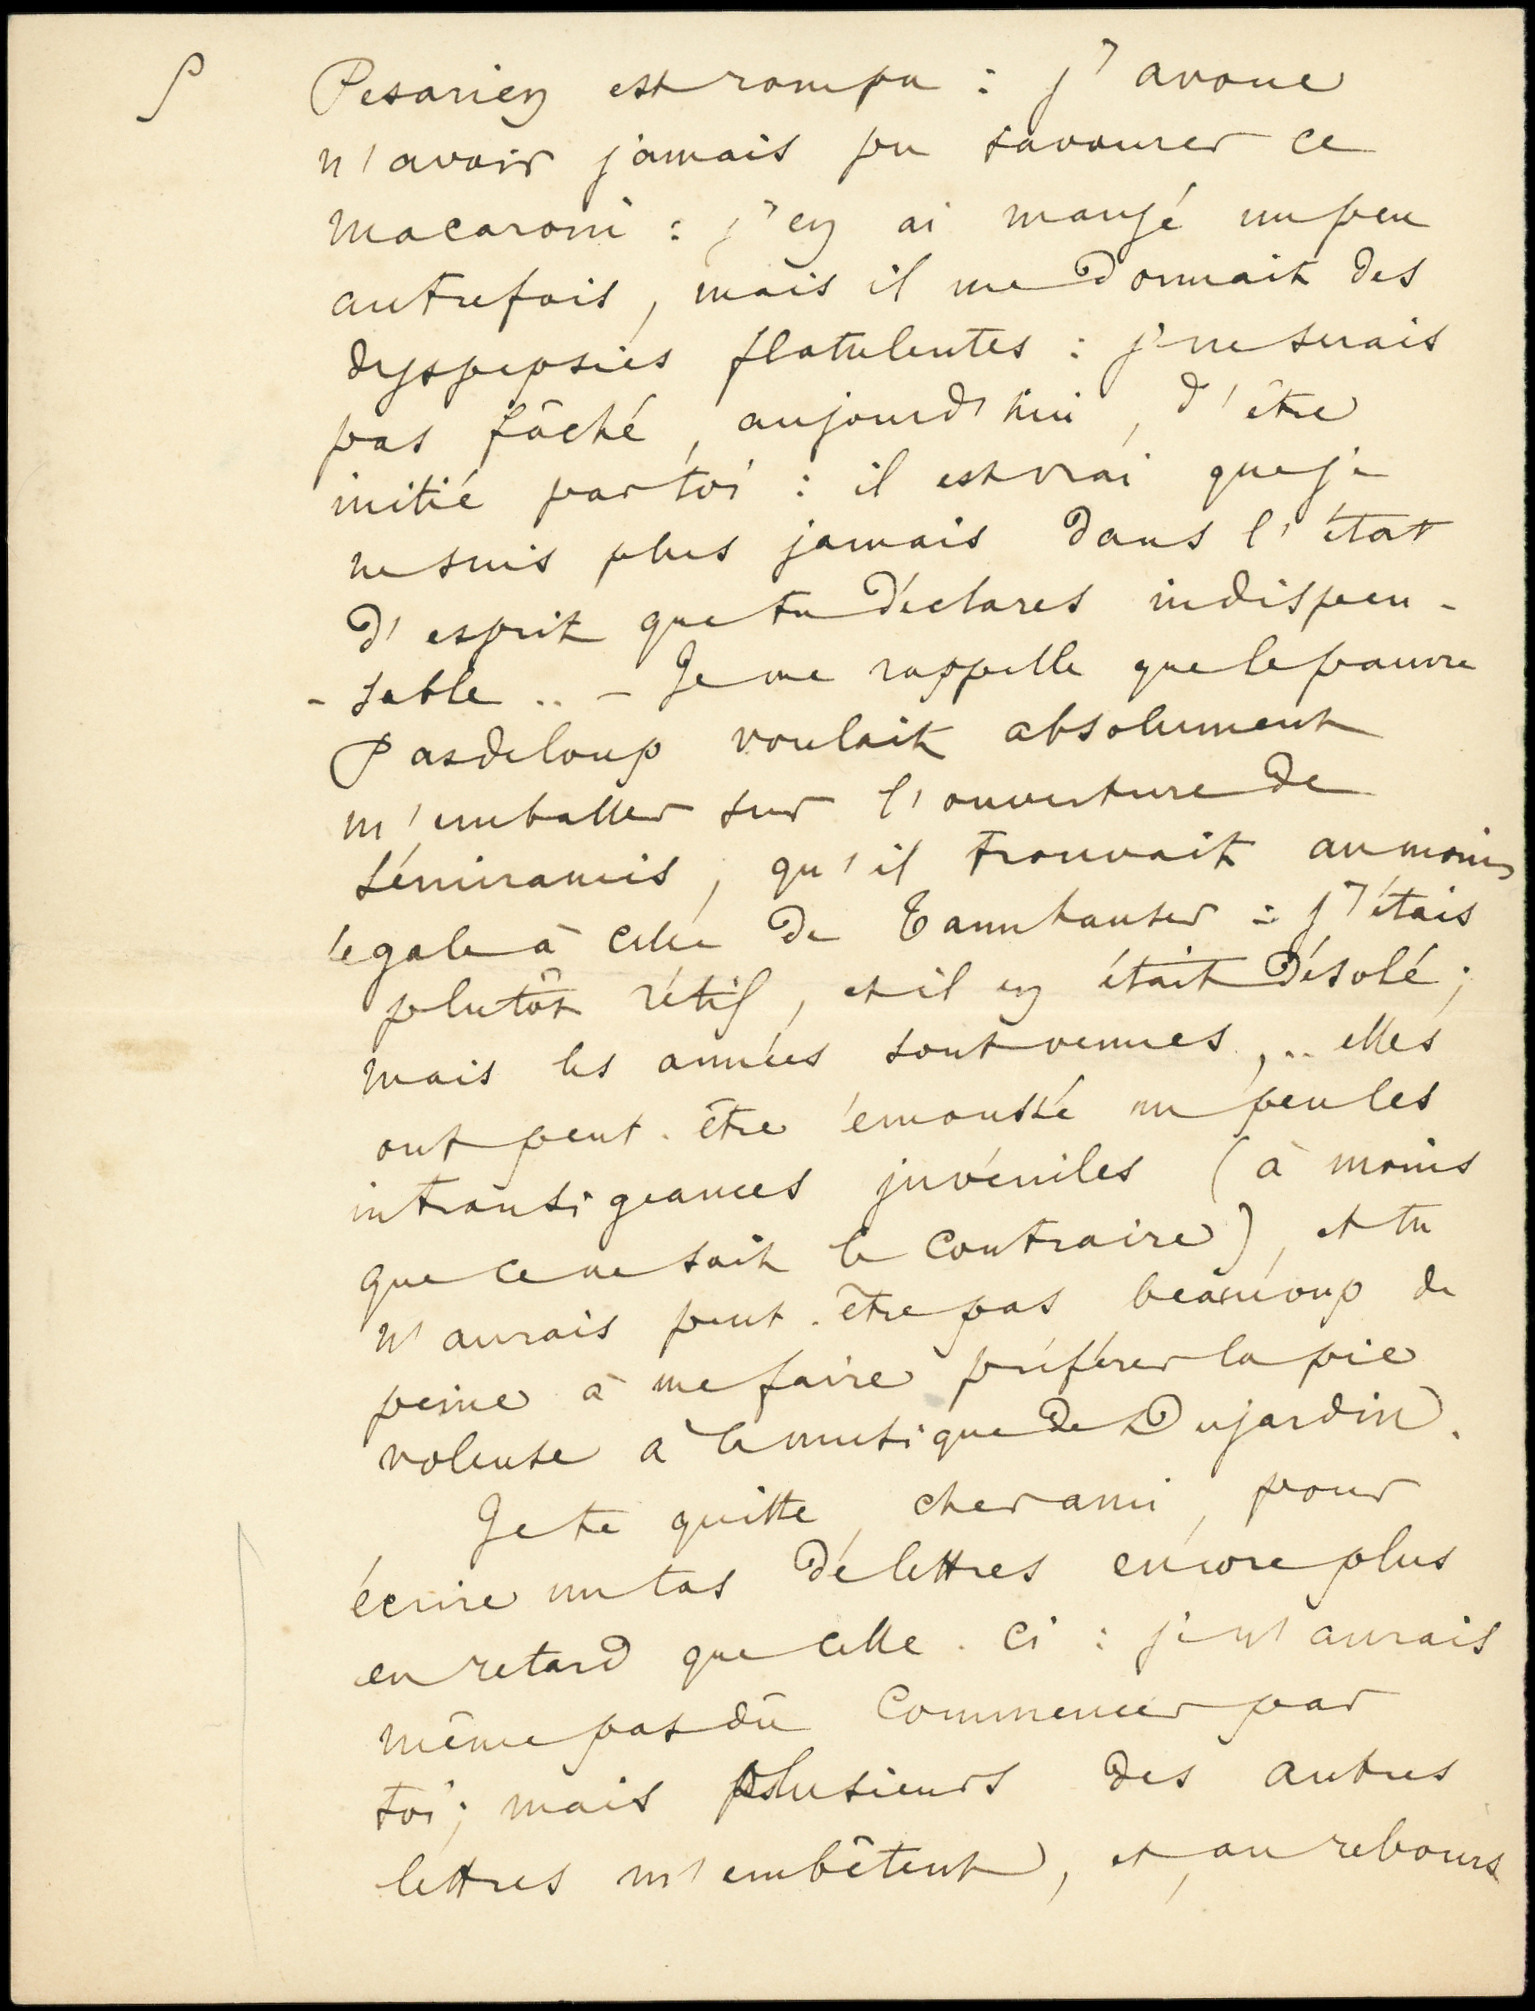 Pesarien est rompu : j'avoue
n'avoir jamais pu savourer ce
macaroni : j'en ai mangé un peu
autrefois, mais il me donnait des
dyspepsies flatulentes : je ne serais
pas fâché, aujourd'hui, d'être
initié par toi : il est vrai que je
ne suis plus jamais dans l'état
d'esprit que tu déclares indispen-
-sable .. - Je me rappelle que le pauvre
Pasdeloup voulait absolument
m'emballer sur l'ouverture de
Sémiramis, qu'il trouvait au moins
égale à celle de Tannhauser : j'étais
plutôt rétif, et il en était désolé ;
mais les années sont venues, .. elles
ont peut-être émoussé un peu les
intransigeances juvéniles (à moins
que ce ne soit le contraire), et tu
n'aurais peut-être pas beaucoup de
peine à me faire préférer la pie
voleuse à la musique de Dujardin.
Je te quitte, cher ami, pour
écrire un tas de lettres encore plus
en retard que celle-ci : je n'aurais
même pas dû commencer par
toi ; mais plusieurs des autres
lettres m'embêtent, et, au rebours